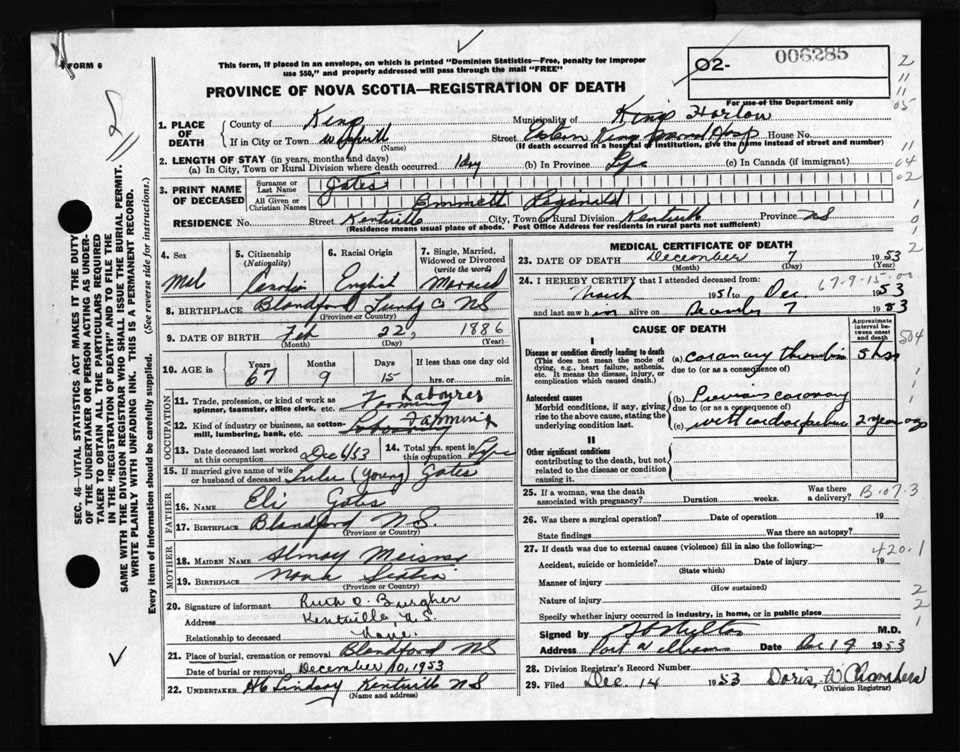 FORM 6
This form, if placed in an envelope, on which is printed "Dominion Statistics—Free, penalty for improper
use $50," and properly addressed will pass through the mail "FREE"
02-
006285
PROVINCE OF NOVA SCOTIA—REGISTRATION OF DEATH
For use of the Department only
1. PLACE OF DEATH
County of Kings
Municipality of Kings Horton
If in City or Town (Name)
Street Kings Hosp House No.
(If death occurred in a hospital or institution, give the name instead of street and number)
2. LENGTH OF STAY (in years, months and days)
(a) In City, Town or Rural Division where death occurred 1 day (b) In Province Life (c) In Canada (if immigrant)
3. PRINT NAME OF DECEASED
Surname or Last Name Gates
All Given or Christian Names Emmett Reginald
RESIDENCE No. Street Kentville City, Town or Rural Division Kentville Province NS
(Residence means usual place of abode. Post Office Address for residents in rural parts not sufficient)
4. Sex
Mal
5. Citizenship (Nationality)
6. Racial Origin
English
7. Single, Married, Widowed or Divorced (write the word)
Married
8. BIRTHPLACE Blandford Lunby Co NS
(Province or Country)
9. DATE OF BIRTH Feb 22, 1886
(Month) (Day) (Year)
10. AGE in Years Months Days If less than one day old
67 9 15 hrs. or min.
11. Trade, profession, or kind of work as spinner, teamster, office clerk, etc. Labourer
12. Kind of industry or business, as cotton-mill, lumbering, bank, etc. Farming
13. Date deceased last worked at this occupation Dec 6/53
14. Total yrs. spent in this occupation Life
15. If married give name of wife or husband of deceased Lulu (Young) Gates
FATHER
16. NAME Eli Gates
17. BIRTHPLACE Blandford NS.
(Province or Country)
MOTHER
18. MAIDEN NAME Meisner
19. BIRTHPLACE Nova Scotia
(Province or Country)
20. Signature of informant Ruth O. Burgher
Address Kentville, N.S.
Relationship to deceased None.
21. Place of burial, cremation or removal Blandford NS
Date of burial or removal December 10, 1953
22. UNDERTAKER Lindsay Kentville NS
(Name and address)
MEDICAL CERTIFICATE OF DEATH
23. DATE OF DEATH December 7 1953
(Month) (Day) (Year)
24. I HEREBY CERTIFY that I attended deceased from:
67-9-15-00
March 1951 to Dec. 1953
and last saw him alive on December 7 1953
CAUSE OF DEATH
Approximate interval between onset and death
I
Disease or condition directly leading to death
(This does not mean the mode of dying, e.g., heart failure, asthenia, etc. It means the disease, injury, or complication which caused death.
(a) coronary thrombosis 5 hrs
due to (or as a consequence of)
Antecedent causes
Morbid conditions, if any, giving rise to the above cause, stating the underlying condition last.
(b) Previous coronary
due to (or as a consequence of)
(c) with cardiac failure 2 years ago
II
Other significant conditions
contributing to the death, but not related to the disease or condition causing it.
25. If a woman, was the death associated with pregnancy? Duration weeks. Was there a delivery?
B 107.3
26. Was there a surgical operation? Date of operation 19
State findings Was there an autopsy?
27. If death was due to external causes (violence) fill in also the following:—
420.1
Accident, suicide or homicide? Date of injury 19
(State which)
Manner of injury
(How sustained)
Nature of injury
Specify whether injury occurred in industry, in home, or in public place
Signed by M.D.
Address Port Williams Date Dec 14 1953
28. Division Registrar's Record Number
29. Filed Dec. 14 1953 Doris W Chambers
(Division Registrar)
SEC. 46—VITAL STATISTICS ACT MAKES IT THE DUTY
OF THE UNDERTAKER OR PERSON ACTING AS UNDER-
TAKER TO OBTAIN ALL THE PARTICULARS REQUIRED
IN THE "REGISTRATION OF DEATH" AND TO FILE THE
SAME WITH THE DIVISION REGISTRAR WHO SHALL ISSUE THE BURIAL PERMIT.
WRITE PLAINLY WITH UNFADING INK. THIS IS A PERMANENT RECORD.
Every item of information should be carefully supplied. (See reverse side for instructions.)